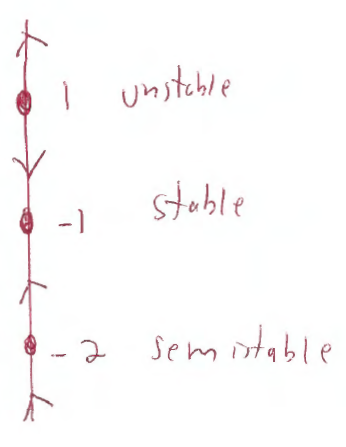 1 unstable
-1 stable
-2 semistable